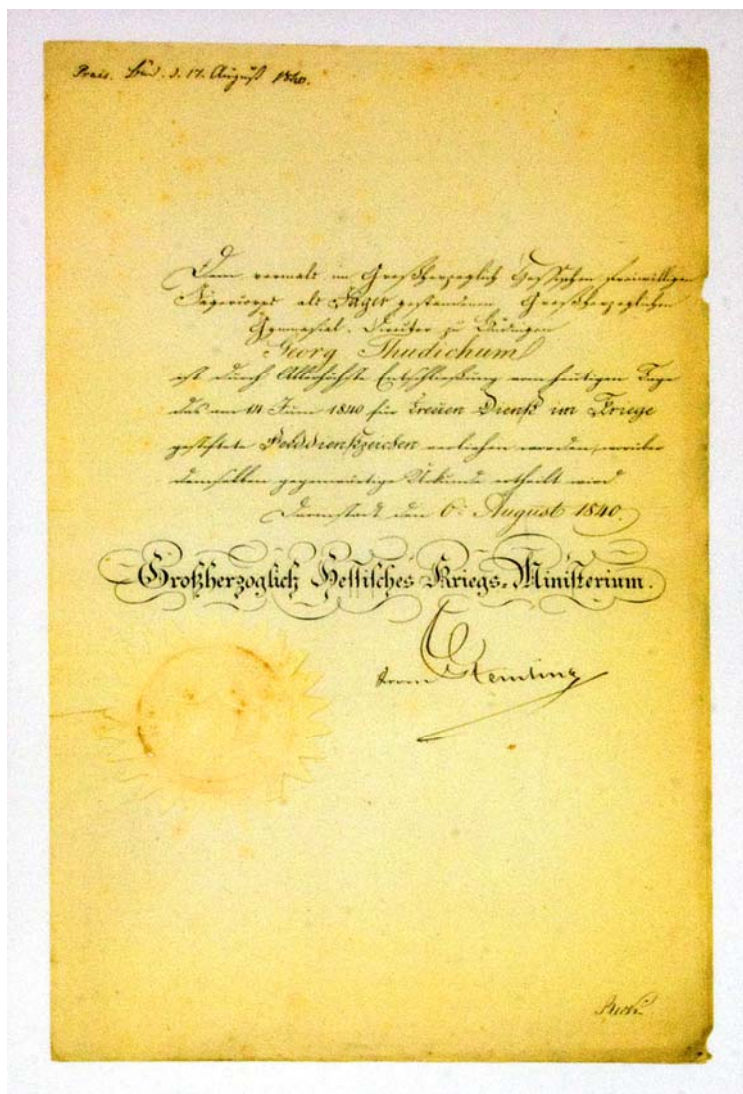 Praes. Büd. d. 17. August 1840.
Dem vormals im Großherzoglich Hessischen freiwilligen
Jägercorps als Jäger gestandenen Großherzoglichen
Gymnasial-Director zu Büdingen
Georg Thudichum
ist durch Allerhöchste Entschließung vom heutigen Tage
das am 14 Juni 1840 für treuen Dienst im Kriege
gestiftete Felddienstzeichen verliehen worden, worüber
demselben gegenwärtige Urkunde ertheilt wird
Darmstadt den 6. August 1840.
Großherzoglich Hessisches Kriegs-Ministerium.